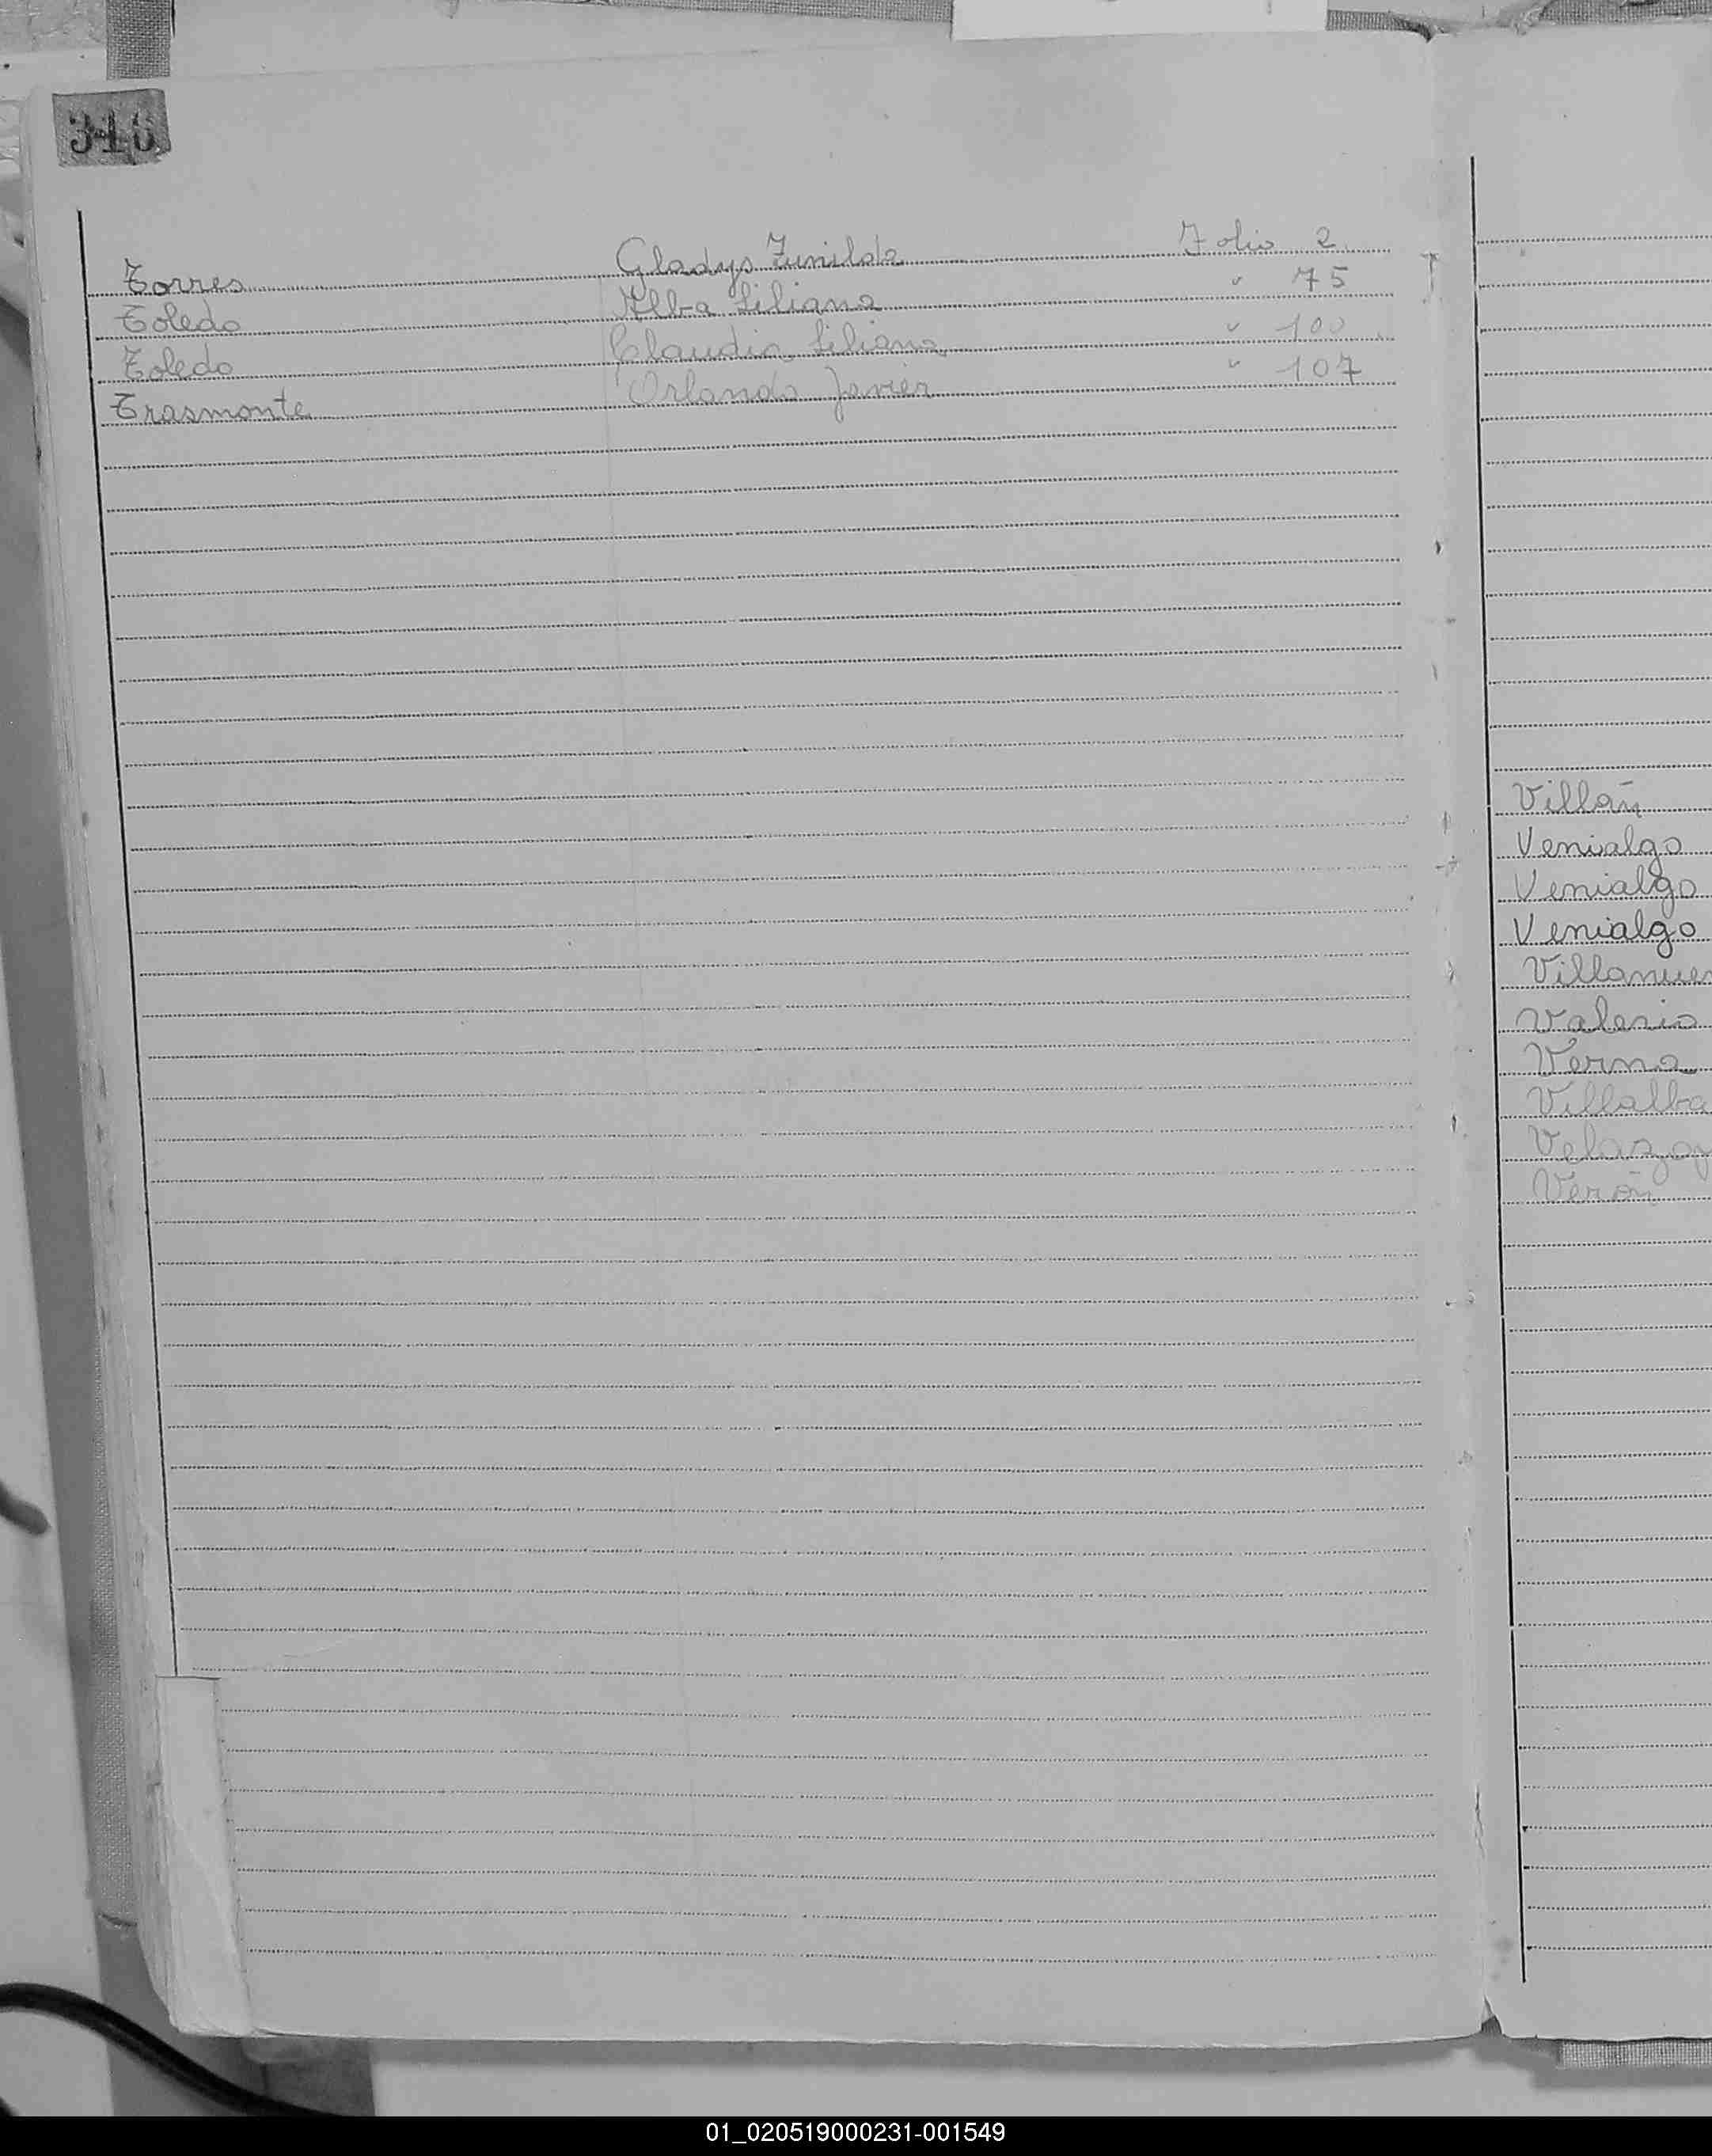 346
Torres Gladys Zunilda Folio 2
Toledo Alba Liliana " 75
Toledo Claudia Liliana " 100
Trasmonte Orlando Javier " 107
Villán
Venialgo
Venialgo
Venialgo
Villanue
Valerio
Verna
Villalba
Velazq
Verón
01_020519000231-001549